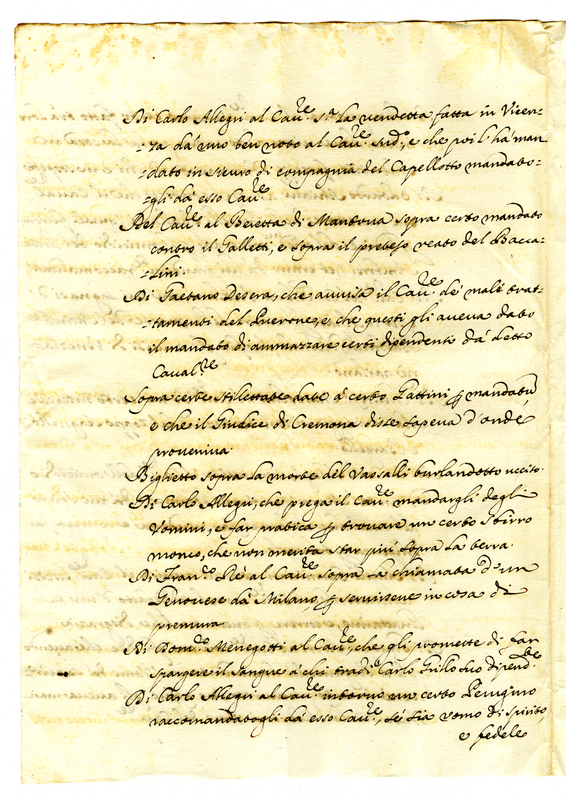 Di Carlo Allegri al Cav.re S.a la vendetta fatta in Vicen-
-za da uno ben noto al Cav.re sud.o, e che poi l'ha man-
-dato in sicuro di compagnia del Capellotto mandato-
-gli da esso Cav.re
Del Cav.re al Beretta di Mantova sopra certo mandato
contro il Galletti, e sopra il preteso reato del Bacca-
-lini.
Di Gaetano Desera, che avvisa il Cav.re de' mali trat-
-tamenti del Querone, e che questi gli aveva dato
il mandato di ammazzare certi dipendenti da detto
Caval.re
Sopra certe stilettate date à certo Pattini p mandato,
e che il Giudice di Cremona disse sapeva d'onde
proveniva
Biglietto sopra la morte del Vassalli burlandotto ucciso.
Di Carlo Allegri, che prega il Cav.re mandargli degli
Uomini, e far pratica p trovare un certo sbirro
monco, che non merita star più sopra la terra.
Di Fran.co Rè al Cav.re sopra la chiamata d'un
Genovese da Milano p servirsene in cosa di
premura
Di Dom.co Menegotti al Cav.re, che gli promette di far
spargere il sangue à chi tradì Carlo Grillo suo dipend.te
Di Carlo Allegri al Cav.re intorno un certo Perugino
raccomandatogli da esso Cav.re, se sia uomo di spirito,
e fedele